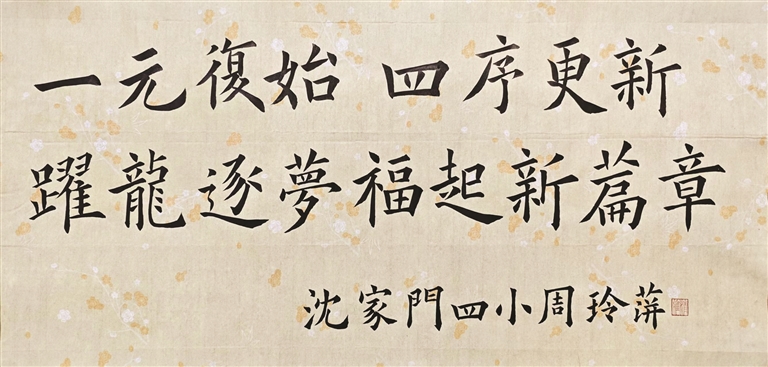 一元復始 四序更新
躍龍逐夢福起新篇章
沈家門四小周玲萍